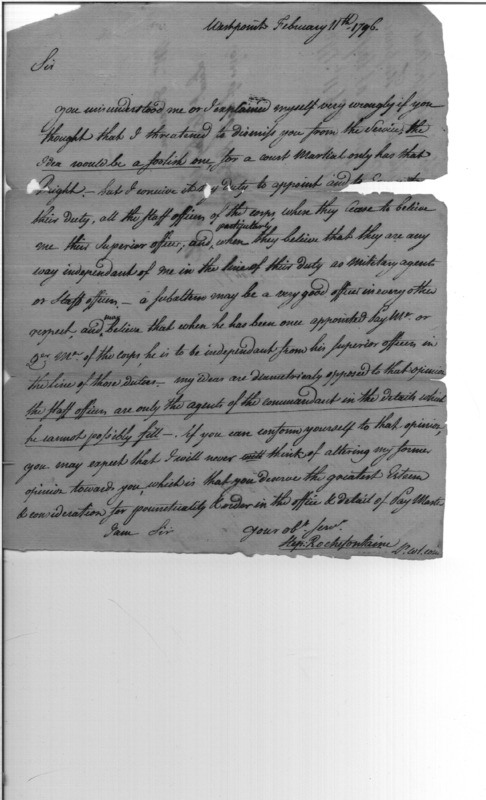 Westpoint February 11th 1796.
Sir
you misunderstood me or I explained myself very wrongly if you
thought that I threatened to dismiss you from the Service, the
Idea would be a foolish one, for a court Martial only has that
Right; but I conceive it my Duty to appoint and to
their Duty, all the Staff officers of the corps, when they cease to believe
me their Superior officer, and particularly when they believe that they are any
way independant of me in the line of their duty as military agents
or Staff officers — a subaltern may be a very good officer in every other
respect, and may believe that when he has been once appointed Pay Mr. or
Qr Mr. of the corps he is to be independant from his superior officers in
the line of those duties — my ideas are diametrically opposed to that opinion
the staff officers are only the agents of the commandant in the details which
he cannot possibly fill —. if you can conform yourself to that opinion,
you may expect that I will never think of altering my former
opinion towards you, which is that you deserve the greatest Esteem
& consideration for pounctuality & order in the office & detail of Pay Master
I am Sir
your obt. servt.
Step: Rochefontaine
Lt. col. com